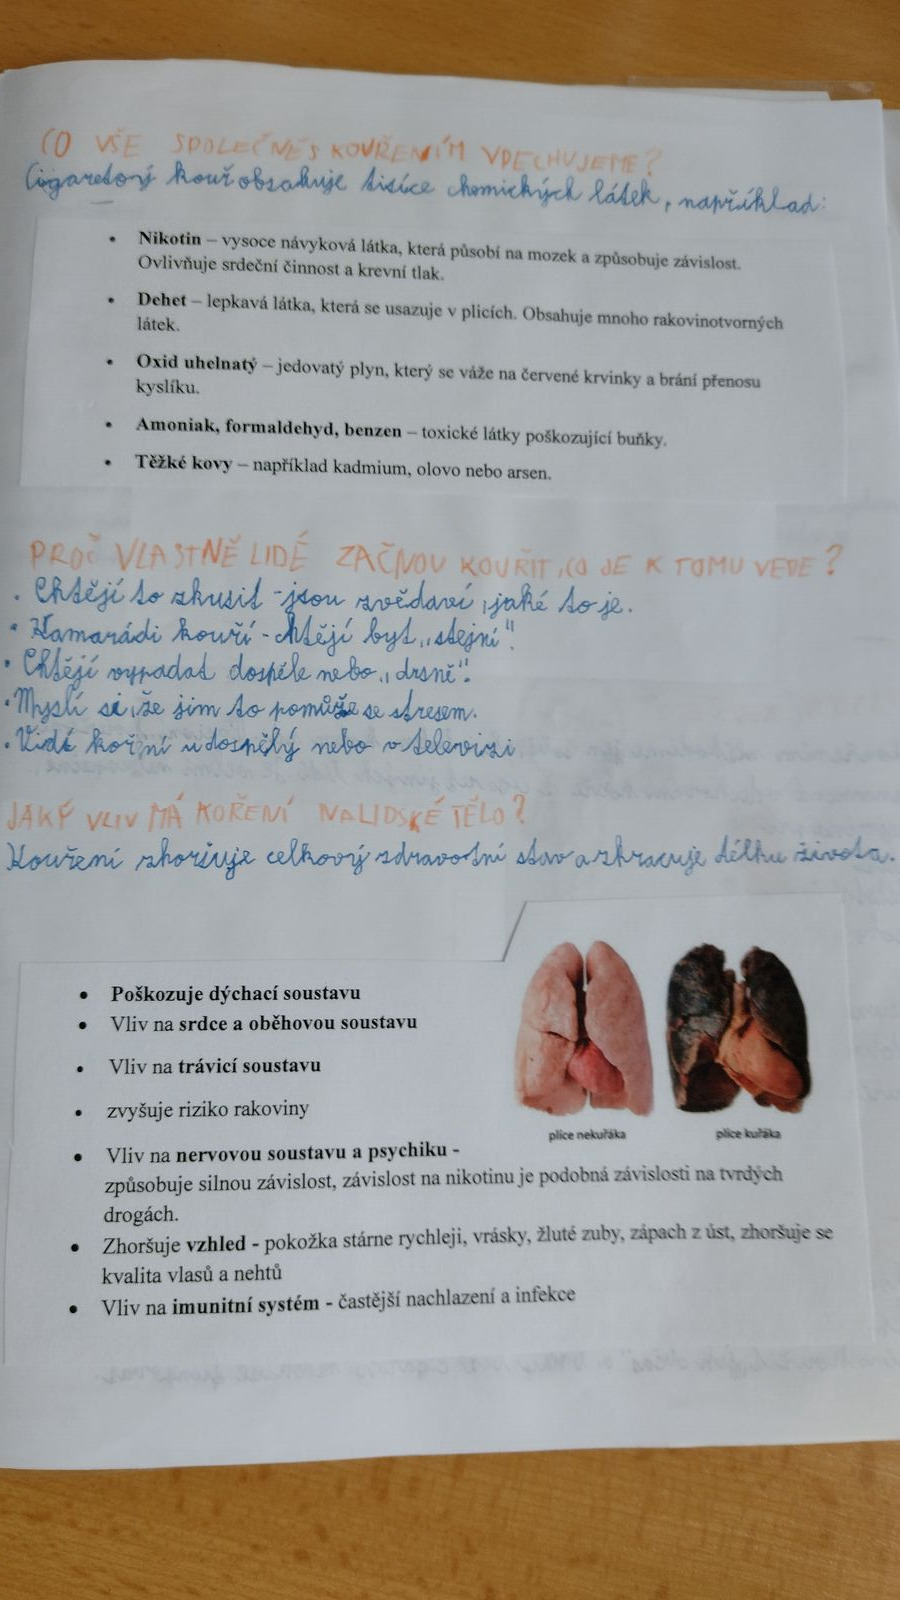 CO VŠE SPOLEČNĚ S KOUŘENÍM VDECHUJEME?
Cigaretový kouř obsahuje tisíce chemických látek, například:
• Nikotin – vysoce návyková látka, která působí na mozek a způsobuje závislost.
Ovlivňuje srdeční činnost a krevní tlak.
• Dehet – lepkavá látka, která se usazuje v plicích. Obsahuje mnoho rakovinotvorných
látek.
• Oxid uhelnatý – jedovatý plyn, který se váže na červené krvinky a brání přenosu
kyslíku.
• Amoniak, formaldehyd, benzen – toxické látky poškozující buňky.
• Těžké kovy – například kadmium, olovo nebo arsen.
PROČ VLASTNĚ LIDÉ ZAČNOU KOUŘIT, CO JE K TOMU VEDE?
• Chtějí to zkusit - jsou zvědaví, jaké to je.
• Kamarádi kouří - chtějí být „stejní“.
• Chtějí vypadat dospěle nebo „drsně“.
• Myslí si, že jim to pomůže se stresem.
• Vidí kouření u dospělý nebo v televizi
JAKÝ VLIV MÁ KOŘENÍ NA LIDSKÉ TĚLO?
Kouření zhoršuje celkový zdravotní stav a zkracuje délku života.
• Poškozuje dýchací soustavu
• Vliv na srdce a oběhovou soustavu
• Vliv na trávicí soustavu
• zvyšuje riziko rakoviny
plíce nekuřáka plíce kuřáka
• Vliv na nervovou soustavu a psychiku -
způsobuje silnou závislost, závislost na nikotinu je podobná závislosti na tvrdých
drogách.
• Zhoršuje vzhled - pokožka stárne rychleji, vrásky, žluté zuby, zápach z úst, zhoršuje se
kvalita vlasů a nehtů
• Vliv na imunitní systém - častější nachlazení a infekce